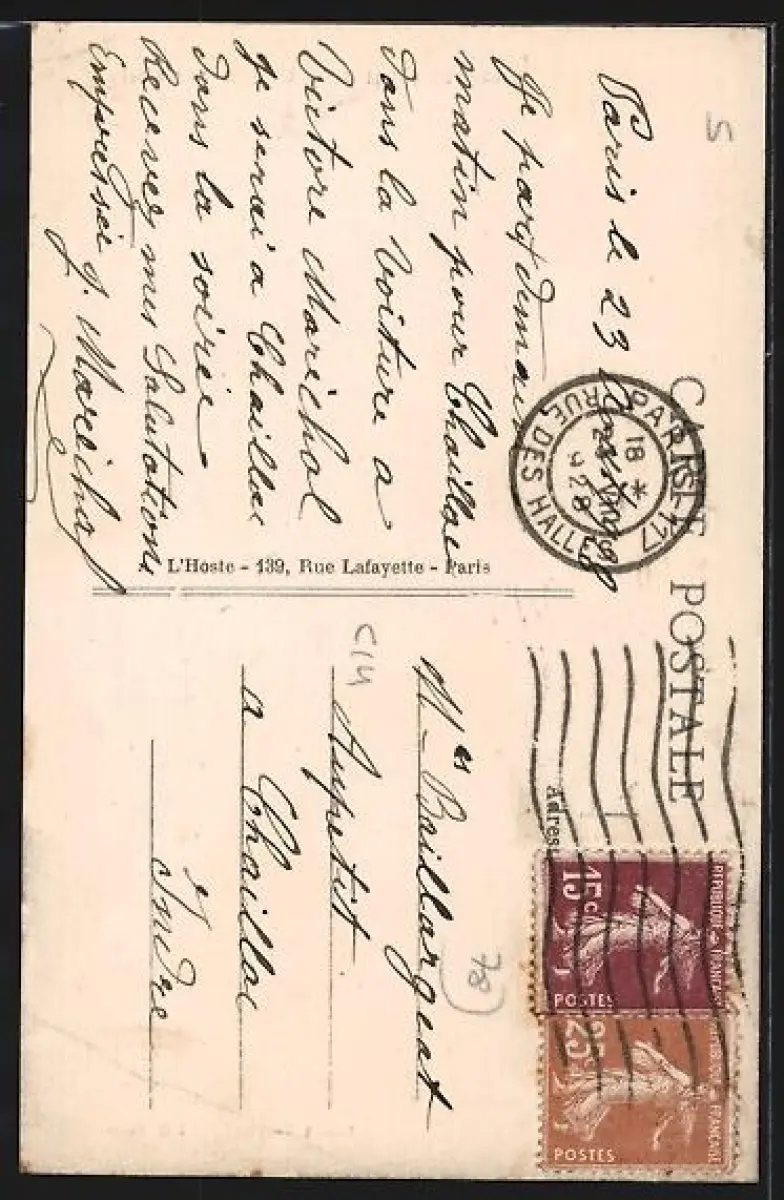 CARTE POSTALE
Paris le 23
Je part demain
matin pour Chaillac
dans la Voiture a
Victore Marechal
Je serai a Chaillac
dans la soirée
Recevez mes Salutations
Empressée J. Marechal
L'Hoste - 139, Rue Lafayette - Paris
PARIS 117
RUE DES HALLES
18
*
28
Adresse
Baillargeat
Ampetit
a Chaillac
Indre
REPUBLIQUE FRANÇAISE
15c
POSTES
REPUBLIQUE FRANÇAISE
25c
POSTES
5
C14
78